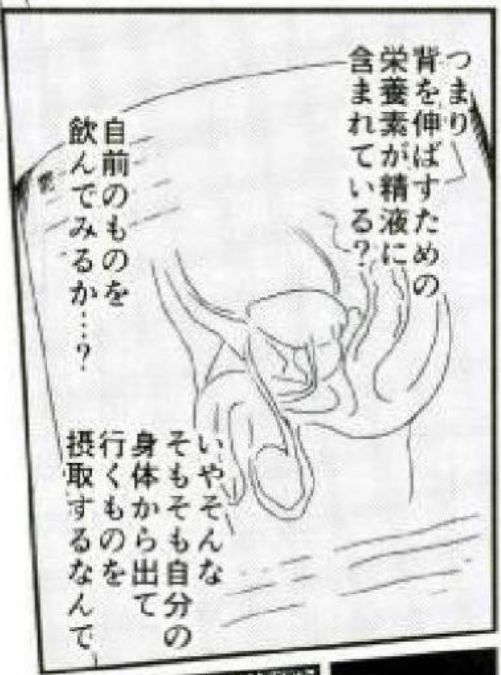 つまり
背を伸ばすための
栄養素が精液に
含まれている?
自前のものを
飲んでみるか…?
いやそんな
そもそも自分の
身体から出て
行くものを
摂取するなんて